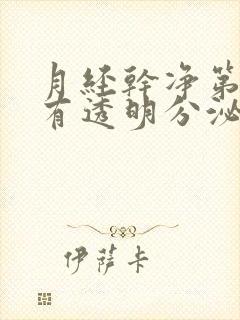 月经幹净第
有透明分泌
伊萨卡